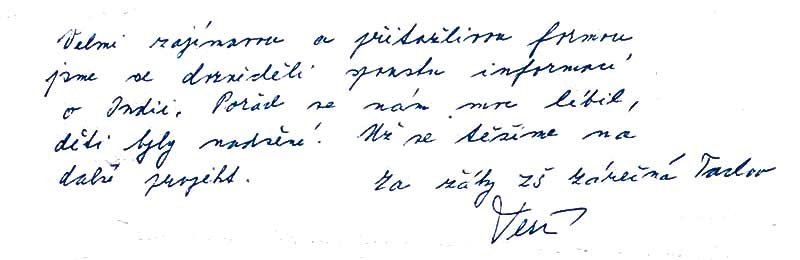 Velmi zajímavou a přitažlivou formou
jsme se dozvěděli spoustu informací
o Indii. Pořad se nám moc líbil,
děti byly nadšené. Už se těšíme na
další projekt. Za žáky ZŠ Zárečná Tachov